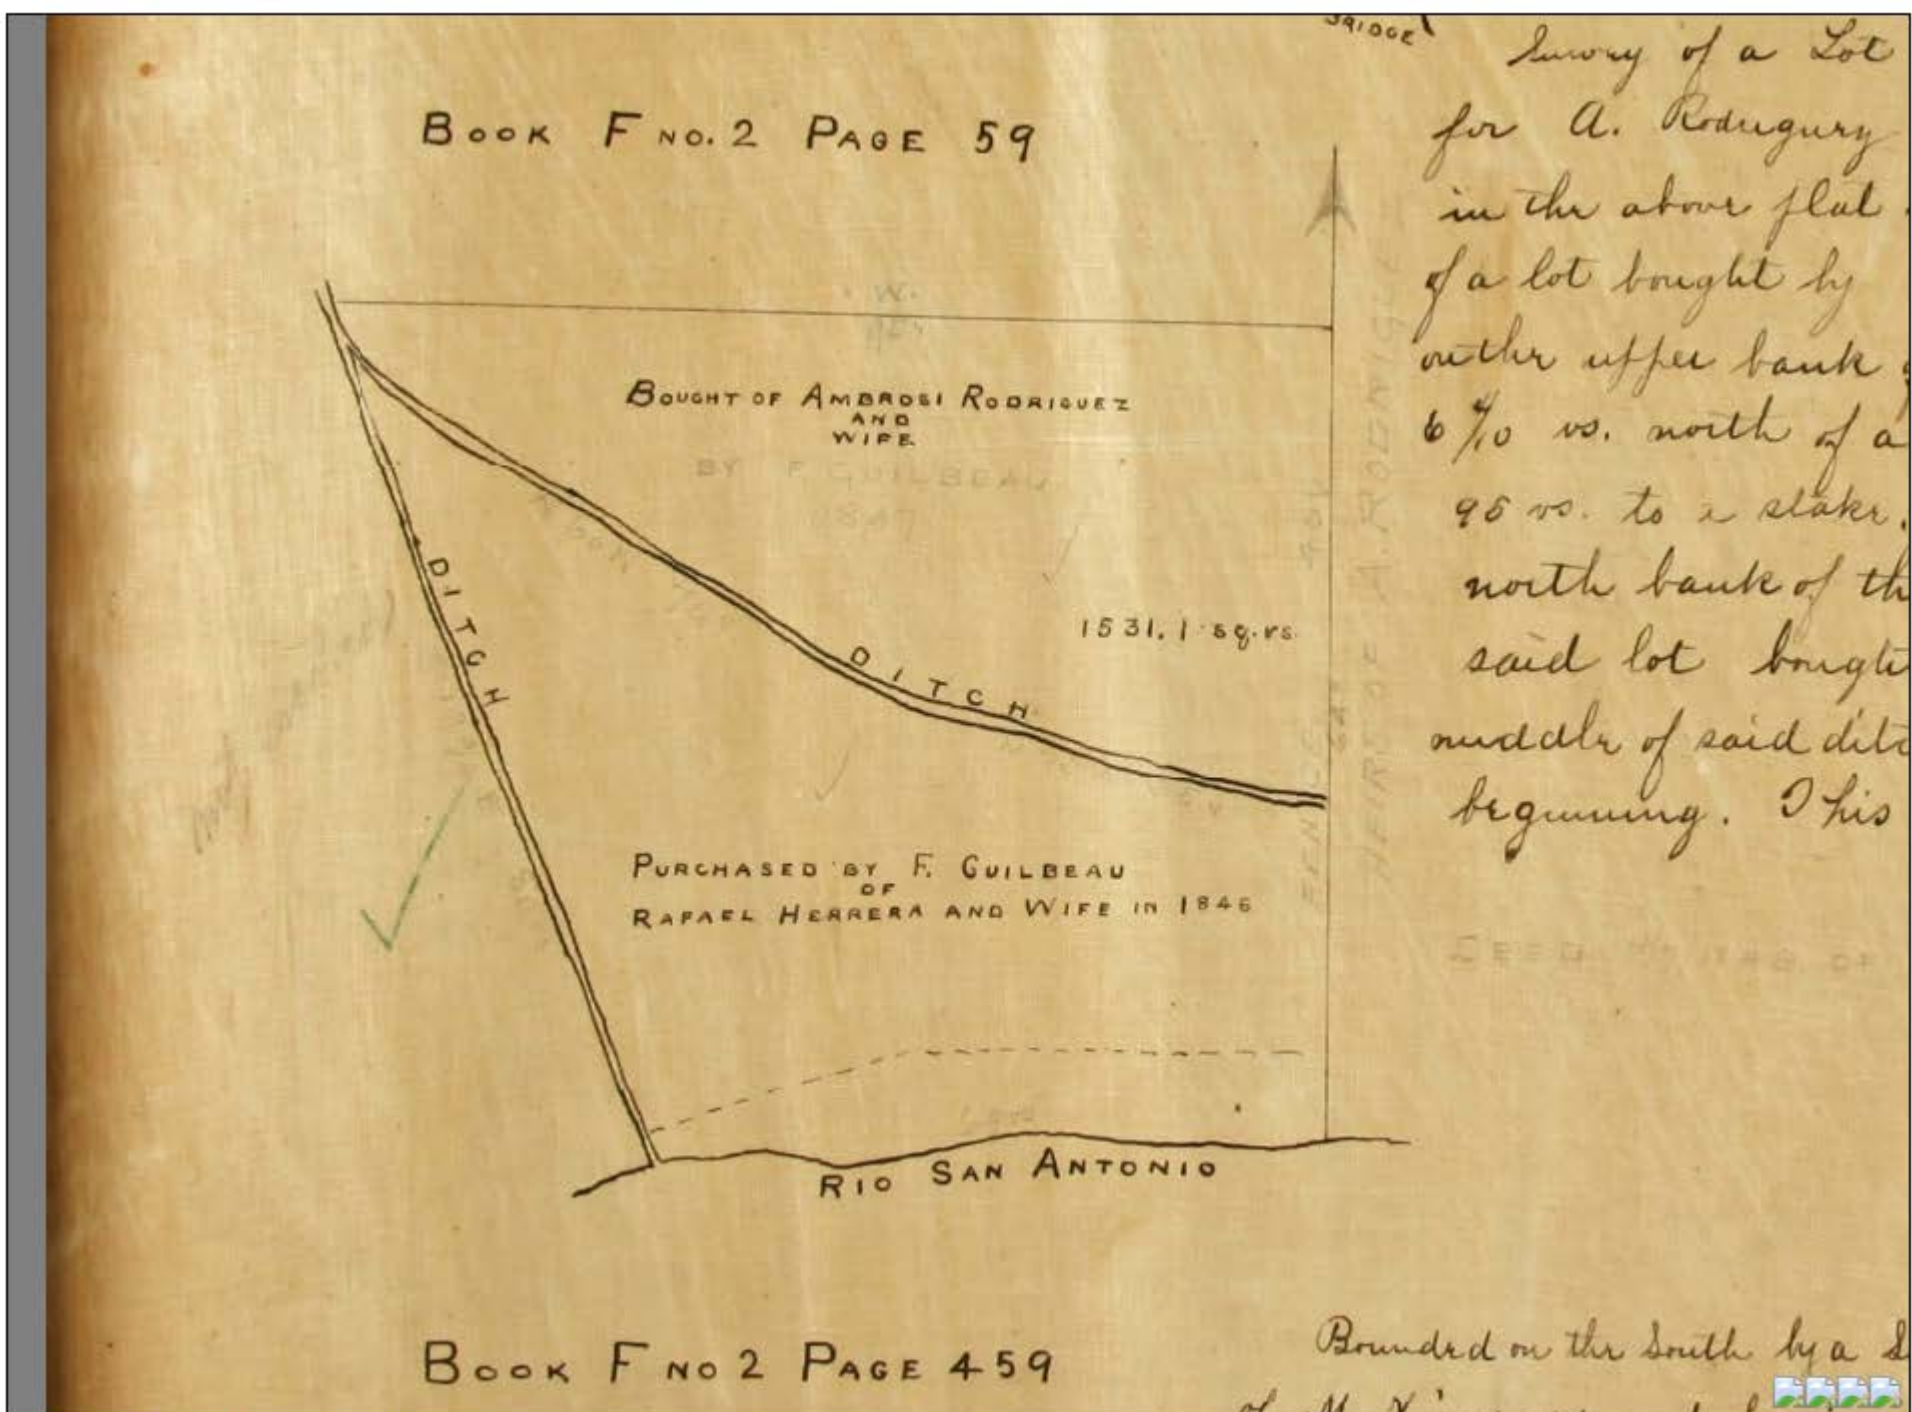 BRIDGE
BOOK F NO. 2 PAGE 59
W.
BOUGHT OF AMBROSI RODRIGUEZ
AND
WIFE
BY F. GUILBEAU
1847
DITCH
DITCH
1531.1 sq. vs.
FENCE
HEIRS OF A. RODRIGUEZ
PURCHASED BY F. GUILBEAU
OF
RAFAEL HERRERA AND WIFE IN 1846
RIO SAN ANTONIO
Survey of a Lot
for A. Rodriguez
in the above plat
of a lot bought by
on the upper bank
6 4/10 vs. north of a
95 vs. to a stake.
north bank of th
said lot bought
middle of said ditc
beginning. This
BOOK F NO 2 PAGE 459
Bounded on the South by a S
of